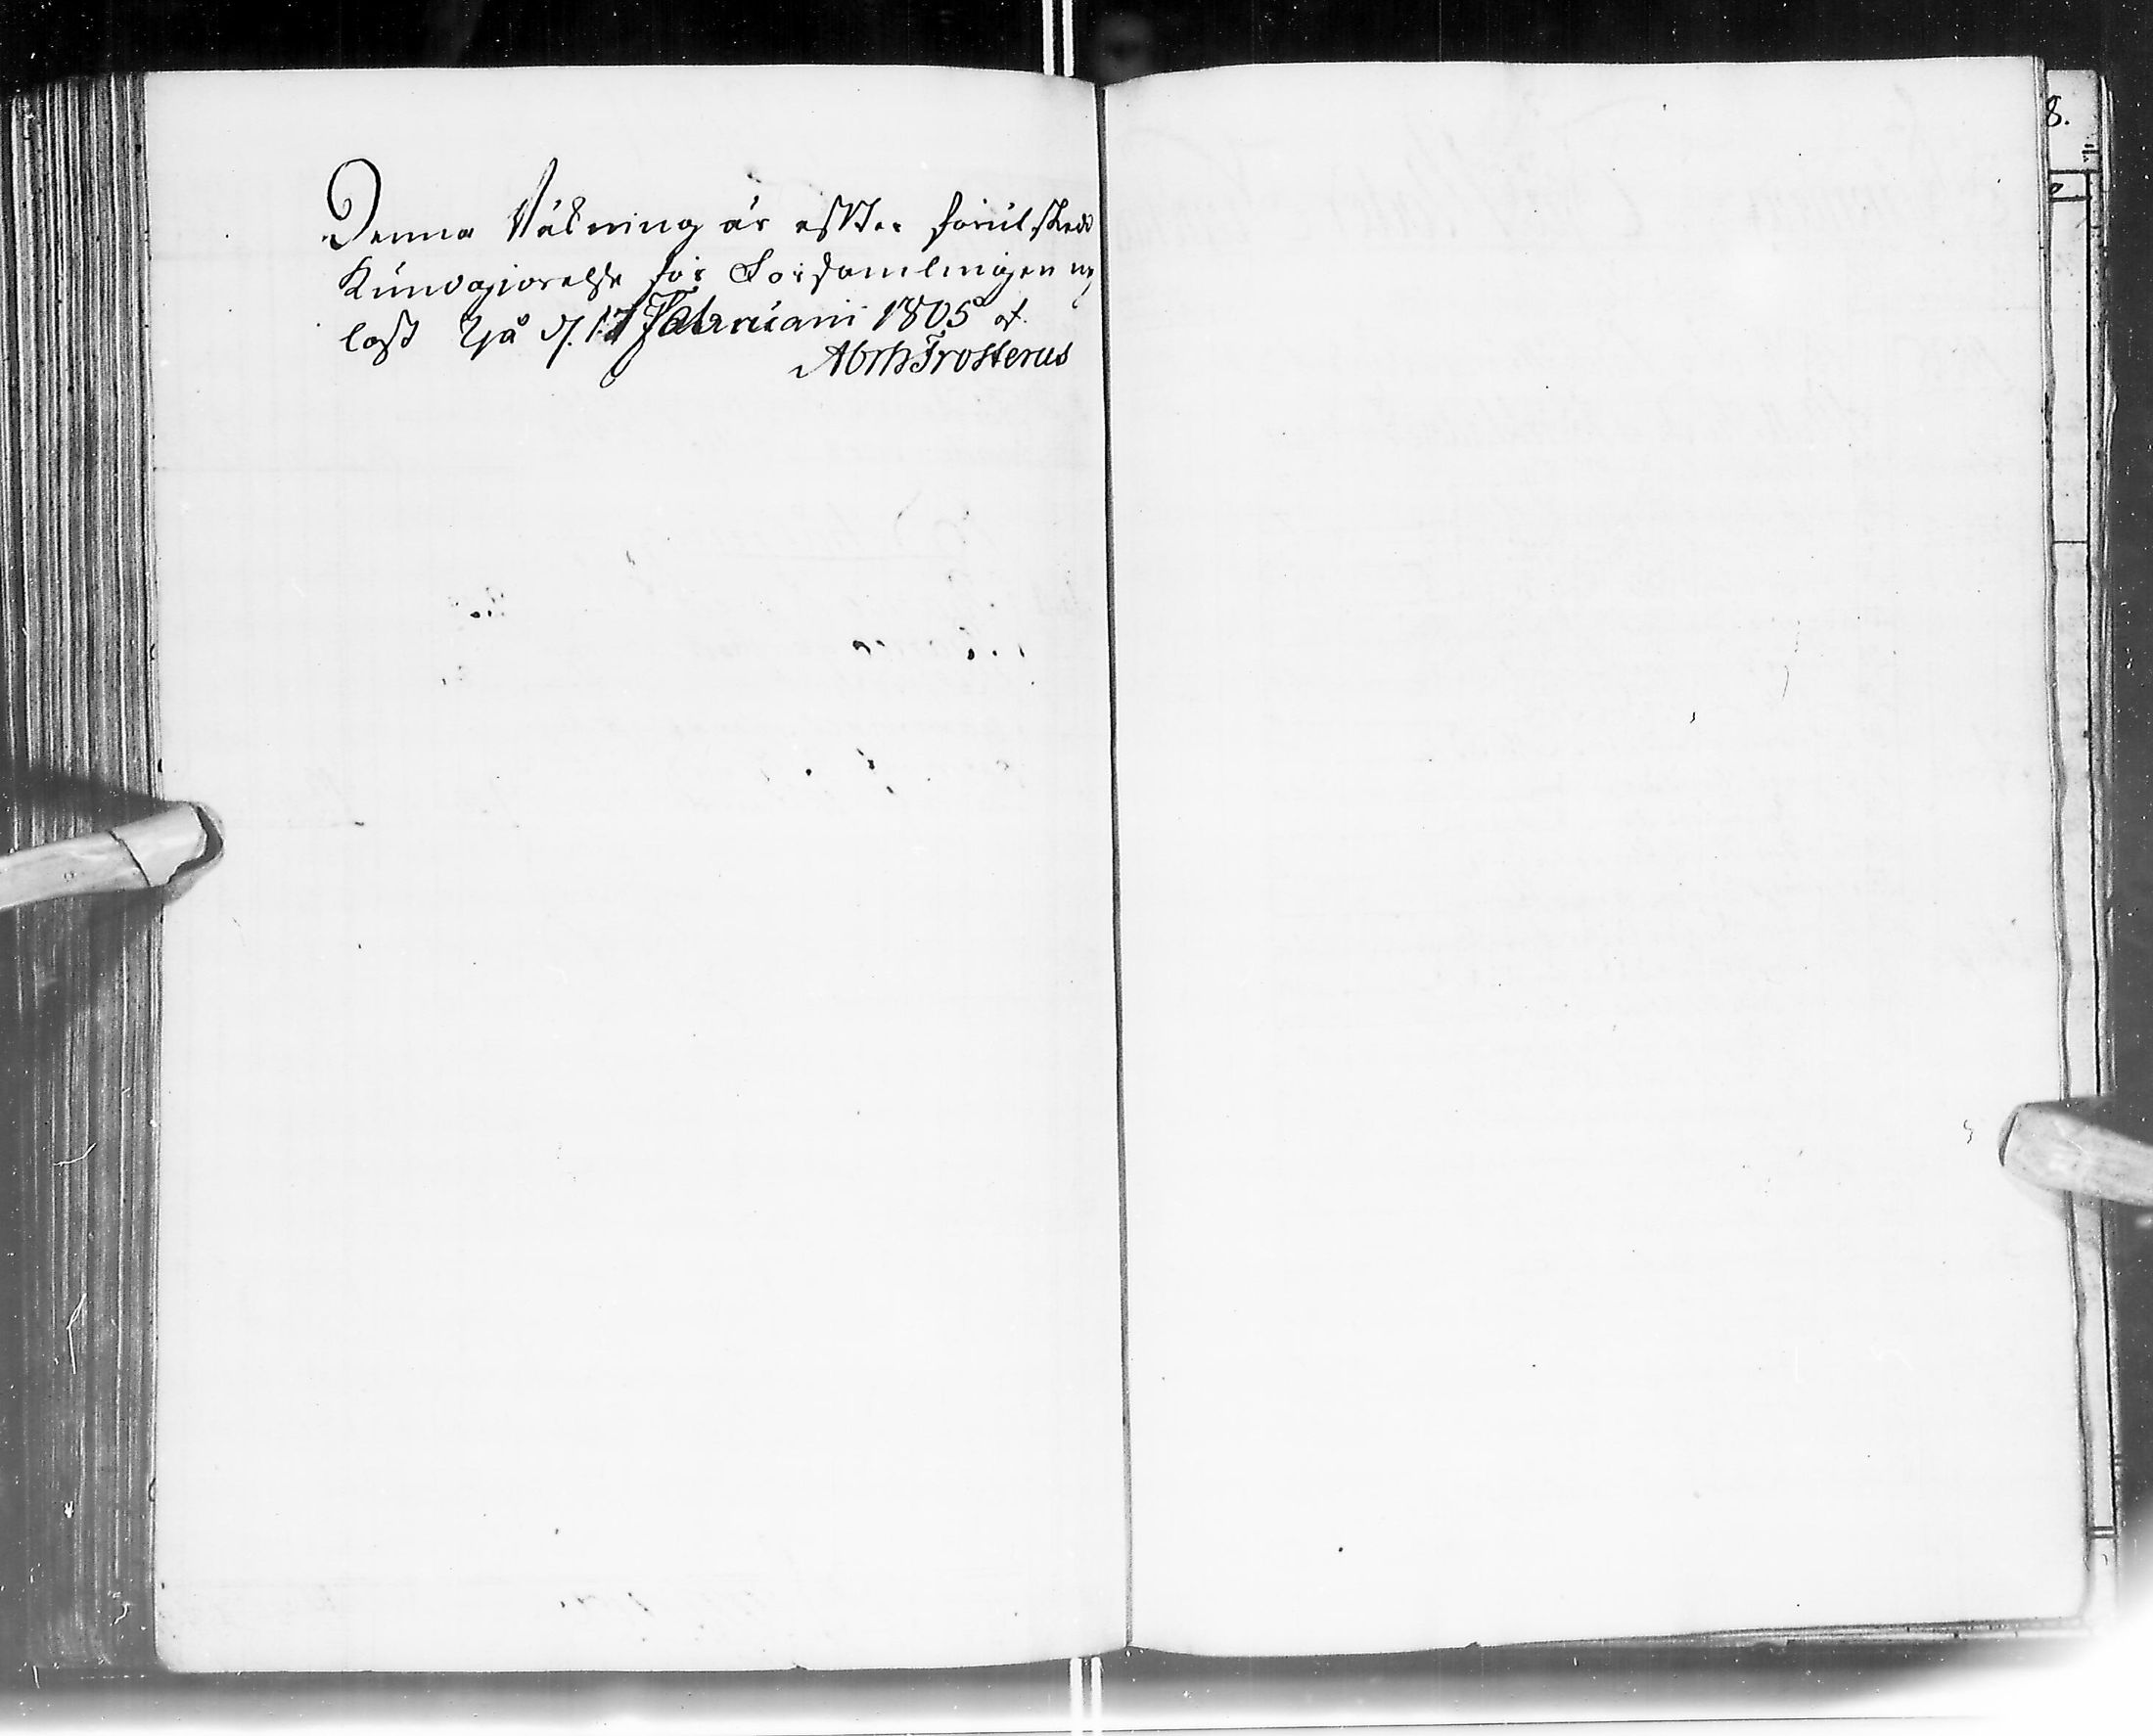 Denna Räkning är efter förut skedd
Kundgiörelse för Församlingen up
läst på d. 17 Februarii 1805 af.
Abrh Frosterus
8.